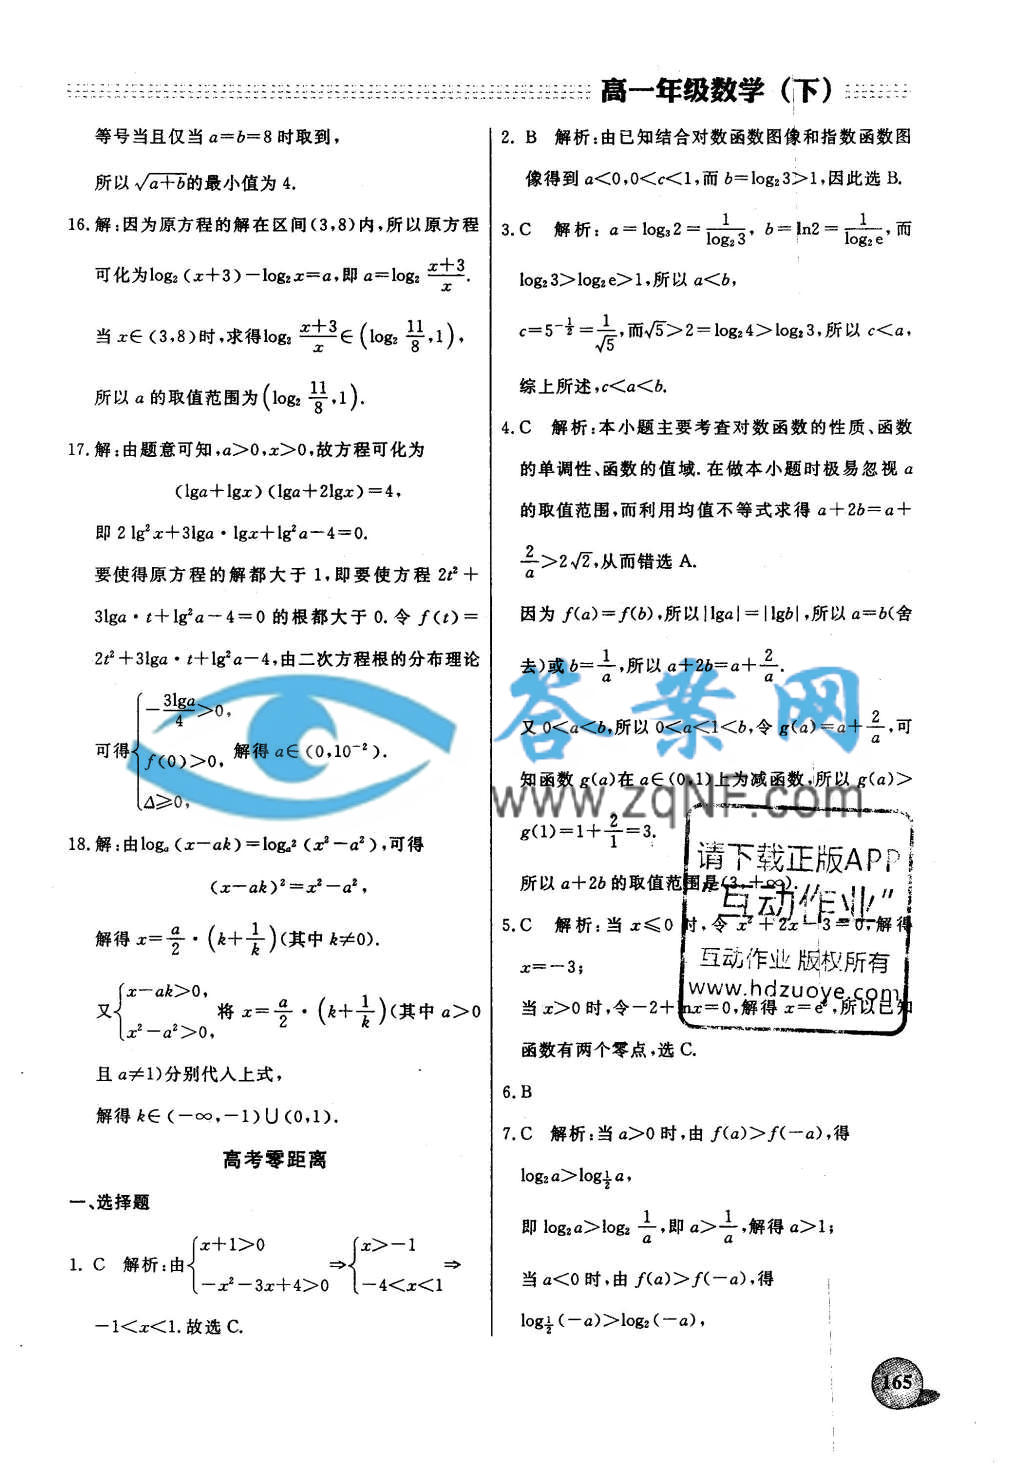 高一年级数学(下)
等号当且仅当 a=b=8 时取到,
所以 √a+b的最小值为 4.
16.解:因为原方程的解在区间(3,8)内,所以原方程
可化为log₂(x+3)-log₂x=a,即 a=log₂ (x+3)/x.
当 x∈(3,8)时,求得log₂ (x+3)/x∈(log₂ 11/8,1),
所以 a 的取值范围为(log₂ 11/8,1).
17.解:由题意可知,a>0,x>0,故方程可化为
(lga+lgx)(lga+2lgx)=4,
即 2 lg²x+3lga·lgx+lg²a-4=0.
要使得原方程的解都大于 1,即要使方程 2t²+
3lga·t+lg²a-4=0 的根都大于 0.令 f(t)=
2t²+3lga·t+lg²a-4,由二次方程根的分布理论
可得{-3lga/4>0, f(0)>0, Δ≥0, 解得 a∈(0,10⁻²).
18.解:由logₐ(x-ak)=logₐ²(x²-a²),可得
(x-ak)²=x²-a²,
解得 x=a/2·(k+1/k)(其中 k≠0).
又{x-ak>0, x²-a²>0, 将 x=a/2·(k+1/k)(其中 a>0
且 a≠1)分别代人上式,
解得 k∈(-∞,-1)∪(0,1).
高考零距离
一、选择题
1. C 解析:由{x+1>0 -x²-3x+4>0⇒{x>-1 -4<x<1⇒
-1<x<1.故选 C.
2. B 解析:由已知结合对数函数图像和指数函数图
像得到 a<0,0<c<1,而 b=log₂3>1,因此选 B.
3.C 解析: a=log₃2=1/log₂3, b=ln2=1/log₂e,而
log₂3>log₂e>1,所以 a<b,
c=5^(-1/2)=1/√5,而√5>2=log₂4>log₂3,所以 c<a,
综上所述,c<a<b.
4.C 解析:本小题主要考查对数函数的性质、函数
的单调性、函数的值域.在做本小题时极易忽视 a
的取值范围,而利用均值不等式求得 a+2b=a+
2/a>2√2,从而错选 A.
因为 f(a)=f(b),所以|lga|=|lgb|,所以 a=b(舍
去)或 b=1/a,所以 a+2b=a+2/a.
又 0<a<b,所以 0<a<1<b,令 g(a)=a+2/a,可
知函数 g(a)在 a∈(0,1)上为减函数,所以 g(a)>
g(1)=1+2/1=3.
所以 a+2b 的取值范围是(3,+∞).
5.C 解析:当 x≤0 时,令 x²+2x-3=0,解得
x=-3;
当 x>0 时,令-2+lnx=0,解得 x=e²,所以已知
函数有两个零点,选 C.
6.B
7.C 解析:当 a>0 时,由 f(a)>f(-a),得
log₂a>log½a,
即 log₂a>log₂ 1/a,即 a>1/a,解得 a>1;
当 a<0 时,由 f(a)>f(-a),得
log½(-a)>log₂(-a),
165
答案网
www.zqNF.com
请下载正版APP
"互动作业"
互动作业 版权所有
www.hdzuoye.com